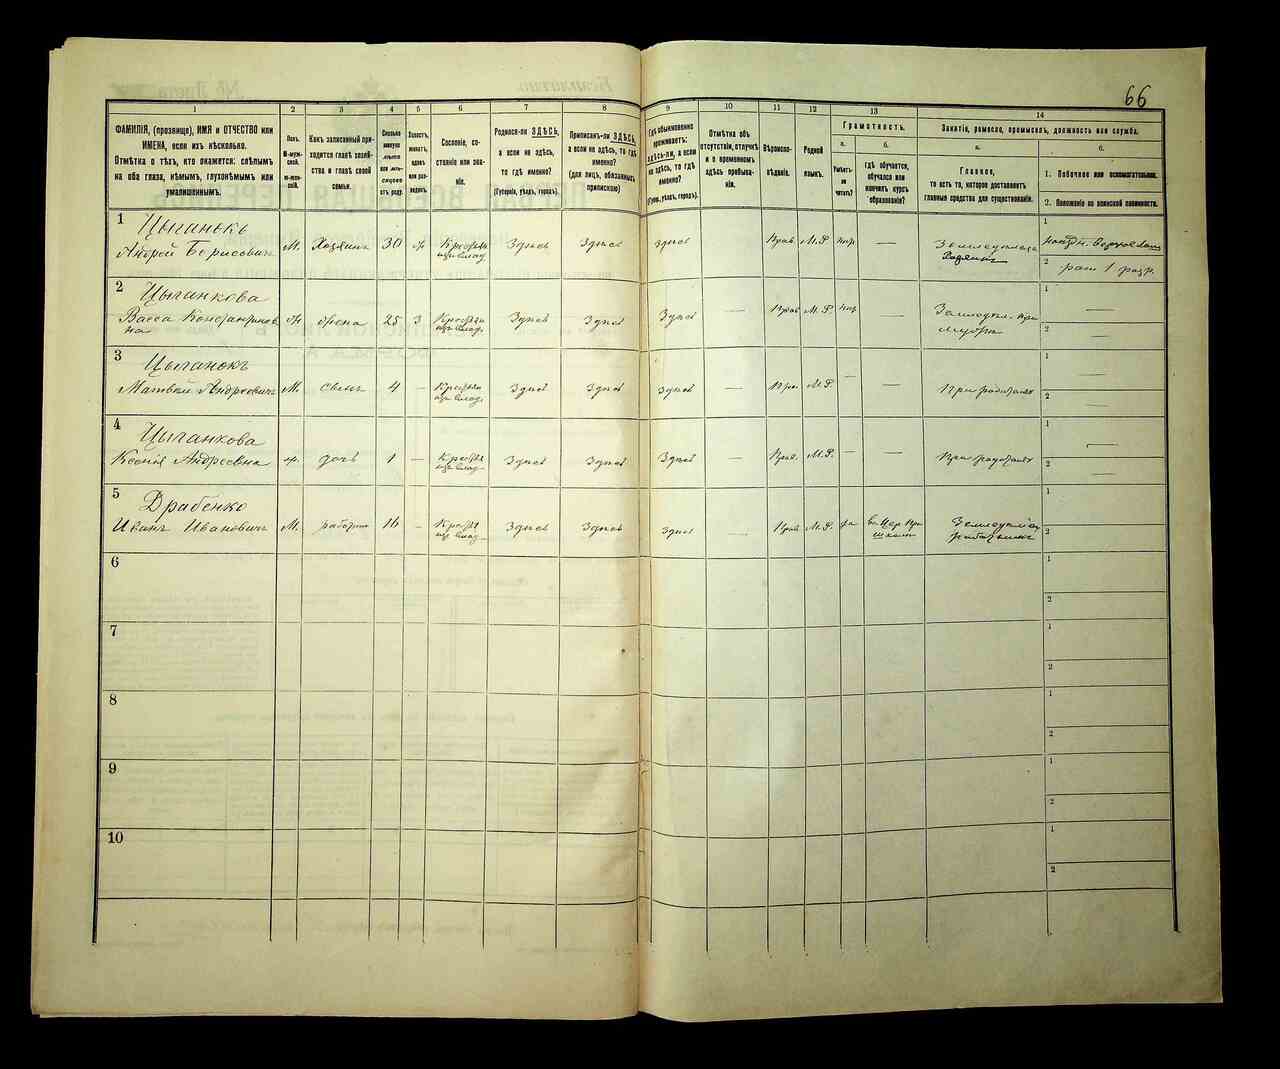 66
1 2 3 4 5 6 7 8 9 10 11 12 13 14
ФАМИЛІЯ, (прозвище), ИМЯ и ОТЧЕСТВО или
ИМЕНА, если ихъ нѣсколько.
Отмѣтка о тѣхъ, кто окажется: слѣпымъ
на оба глаза, нѣмымъ, глухонѣмымъ или
умалишеннымъ.
Полъ.
М-муж-
ской.
Ж-жен-
скій.
Какъ записанный при-
ходится главѣ хозяй-
ства и главѣ своей
семьи.
Сколько
минуло
лѣтъ
или мѣ-
сяцевъ
отъ роду.
Холостъ,
женатъ,
вдовъ
или раз-
веденъ.
Сословіе, со-
стояніе или зва-
ніе.
Родился-ли ЗДѢСЬ,
а если не здѣсь,
то гдѣ именно?
(Губернія, уѣздъ, городъ).
Приписанъ-ли ЗДѢСЬ,
а если не здѣсь, то гдѣ
именно?
(для лицъ, обязанныхъ
припискою)
Гдѣ обыкновенно
проживаетъ:
здѣсь-ли, а если
не здѣсь, то гдѣ
именно?
(Губерн., уѣздъ, городъ).
Отмѣтка объ
отсутствіи, отлучкѣ
и о временномъ
здѣсь пребыва-
ніи.
Вѣроиспо-
вѣданіе.
Родной
языкъ.
Грамотность.
а.
Умѣетъ-
ли
читать?
б.
гдѣ обучается,
обучался или
кончилъ курсъ
образованія?
Занятіе, ремесло, промыселъ, должность или служба.
а.
Главное,
то есть то, которое доставляетъ
главныя средства для существованія.
б.
1. Побочное или вспомогательное.
2. Положеніе по воинской повинности.
1 Цыганокъ
Андрей Борисович М. Хозяинъ 30 ж Крестьян изъ влад. Здѣсь Здѣсь Здѣсь Прав М.Р. — Хозяинъ
1
2 рат 1 разр.
2 Цыганкова
Васса Константинов
на ж жена 25 з Крестьян изъ влад. Здѣсь Здѣсь Здѣсь — Прав М.Р. — Земледѣл. при мужѣ
1 —
2 —
3 Цыганокъ
Матвѣй Андреевичъ М. сынъ 4 — Крестьян изъ влад. Здѣсь Здѣсь Здѣсь — Пра. М.Р. — — При родителях
1 —
2 —
4 Цыганкова
Ксенія Андреевна ж. дочь 1 — Крестьян изъ влад. Здѣсь Здѣсь Здѣсь — Прав. М.Р. — — При родителях
1 —
2 —
5 Драбенко
Иванъ Ивановичъ М. 16 — Крестьян изъ влад. Здѣсь Здѣсь Здѣсь — Прав М.Р. въ Цер при школѣ работникъ
1
2
6 1
2
7 1
2
8 1
2
9 1
2
10 1
2